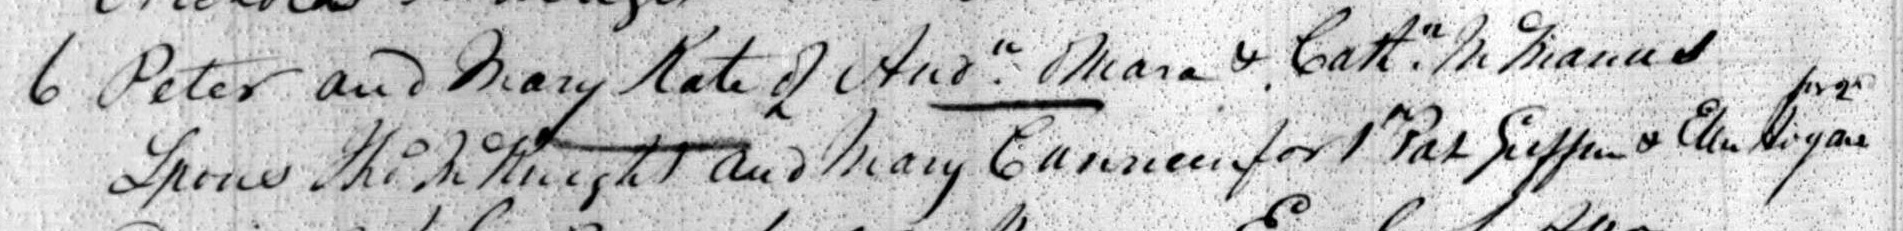 6 Peter and Mary Kate of And.ⁿ OMara & Cath.ⁿ McManus
Spons Tho.s McKnight and Mary Cunneen for 1st Pat Griffin & Ellen Hogan for 2d